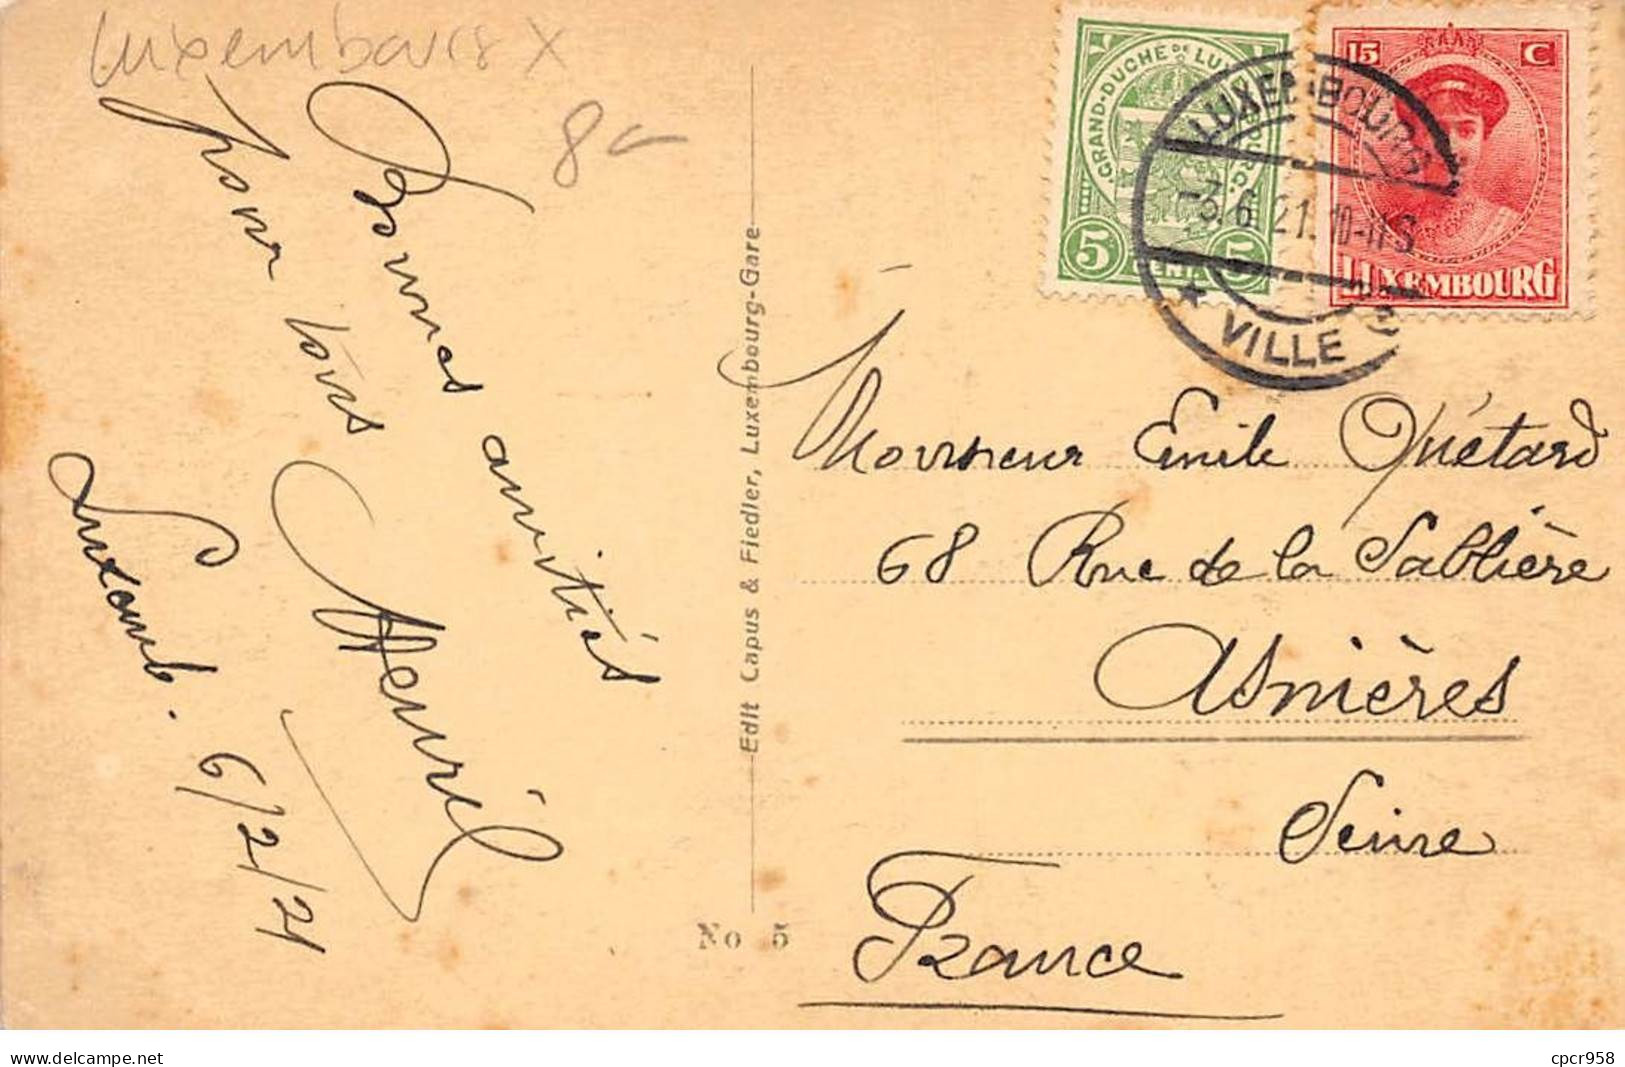 Luxembourg X
8
Bonnes amitiés
pour tous
Luxemb. 6/2/21
Edit Capus & Fiedler, Luxembourg-Gare
No 5
GRAND-DUCHÉ DE LUXEMBOURG.
5 CENT. 5
15 C
LUXEMBOURG
LUXEMBOURG
6. 21. 10-11 S
VILLE
Monsieur Emile Quétard
68 Rue de la Sablière
Asnières
Seine
France
delcampe.net
cpcr958